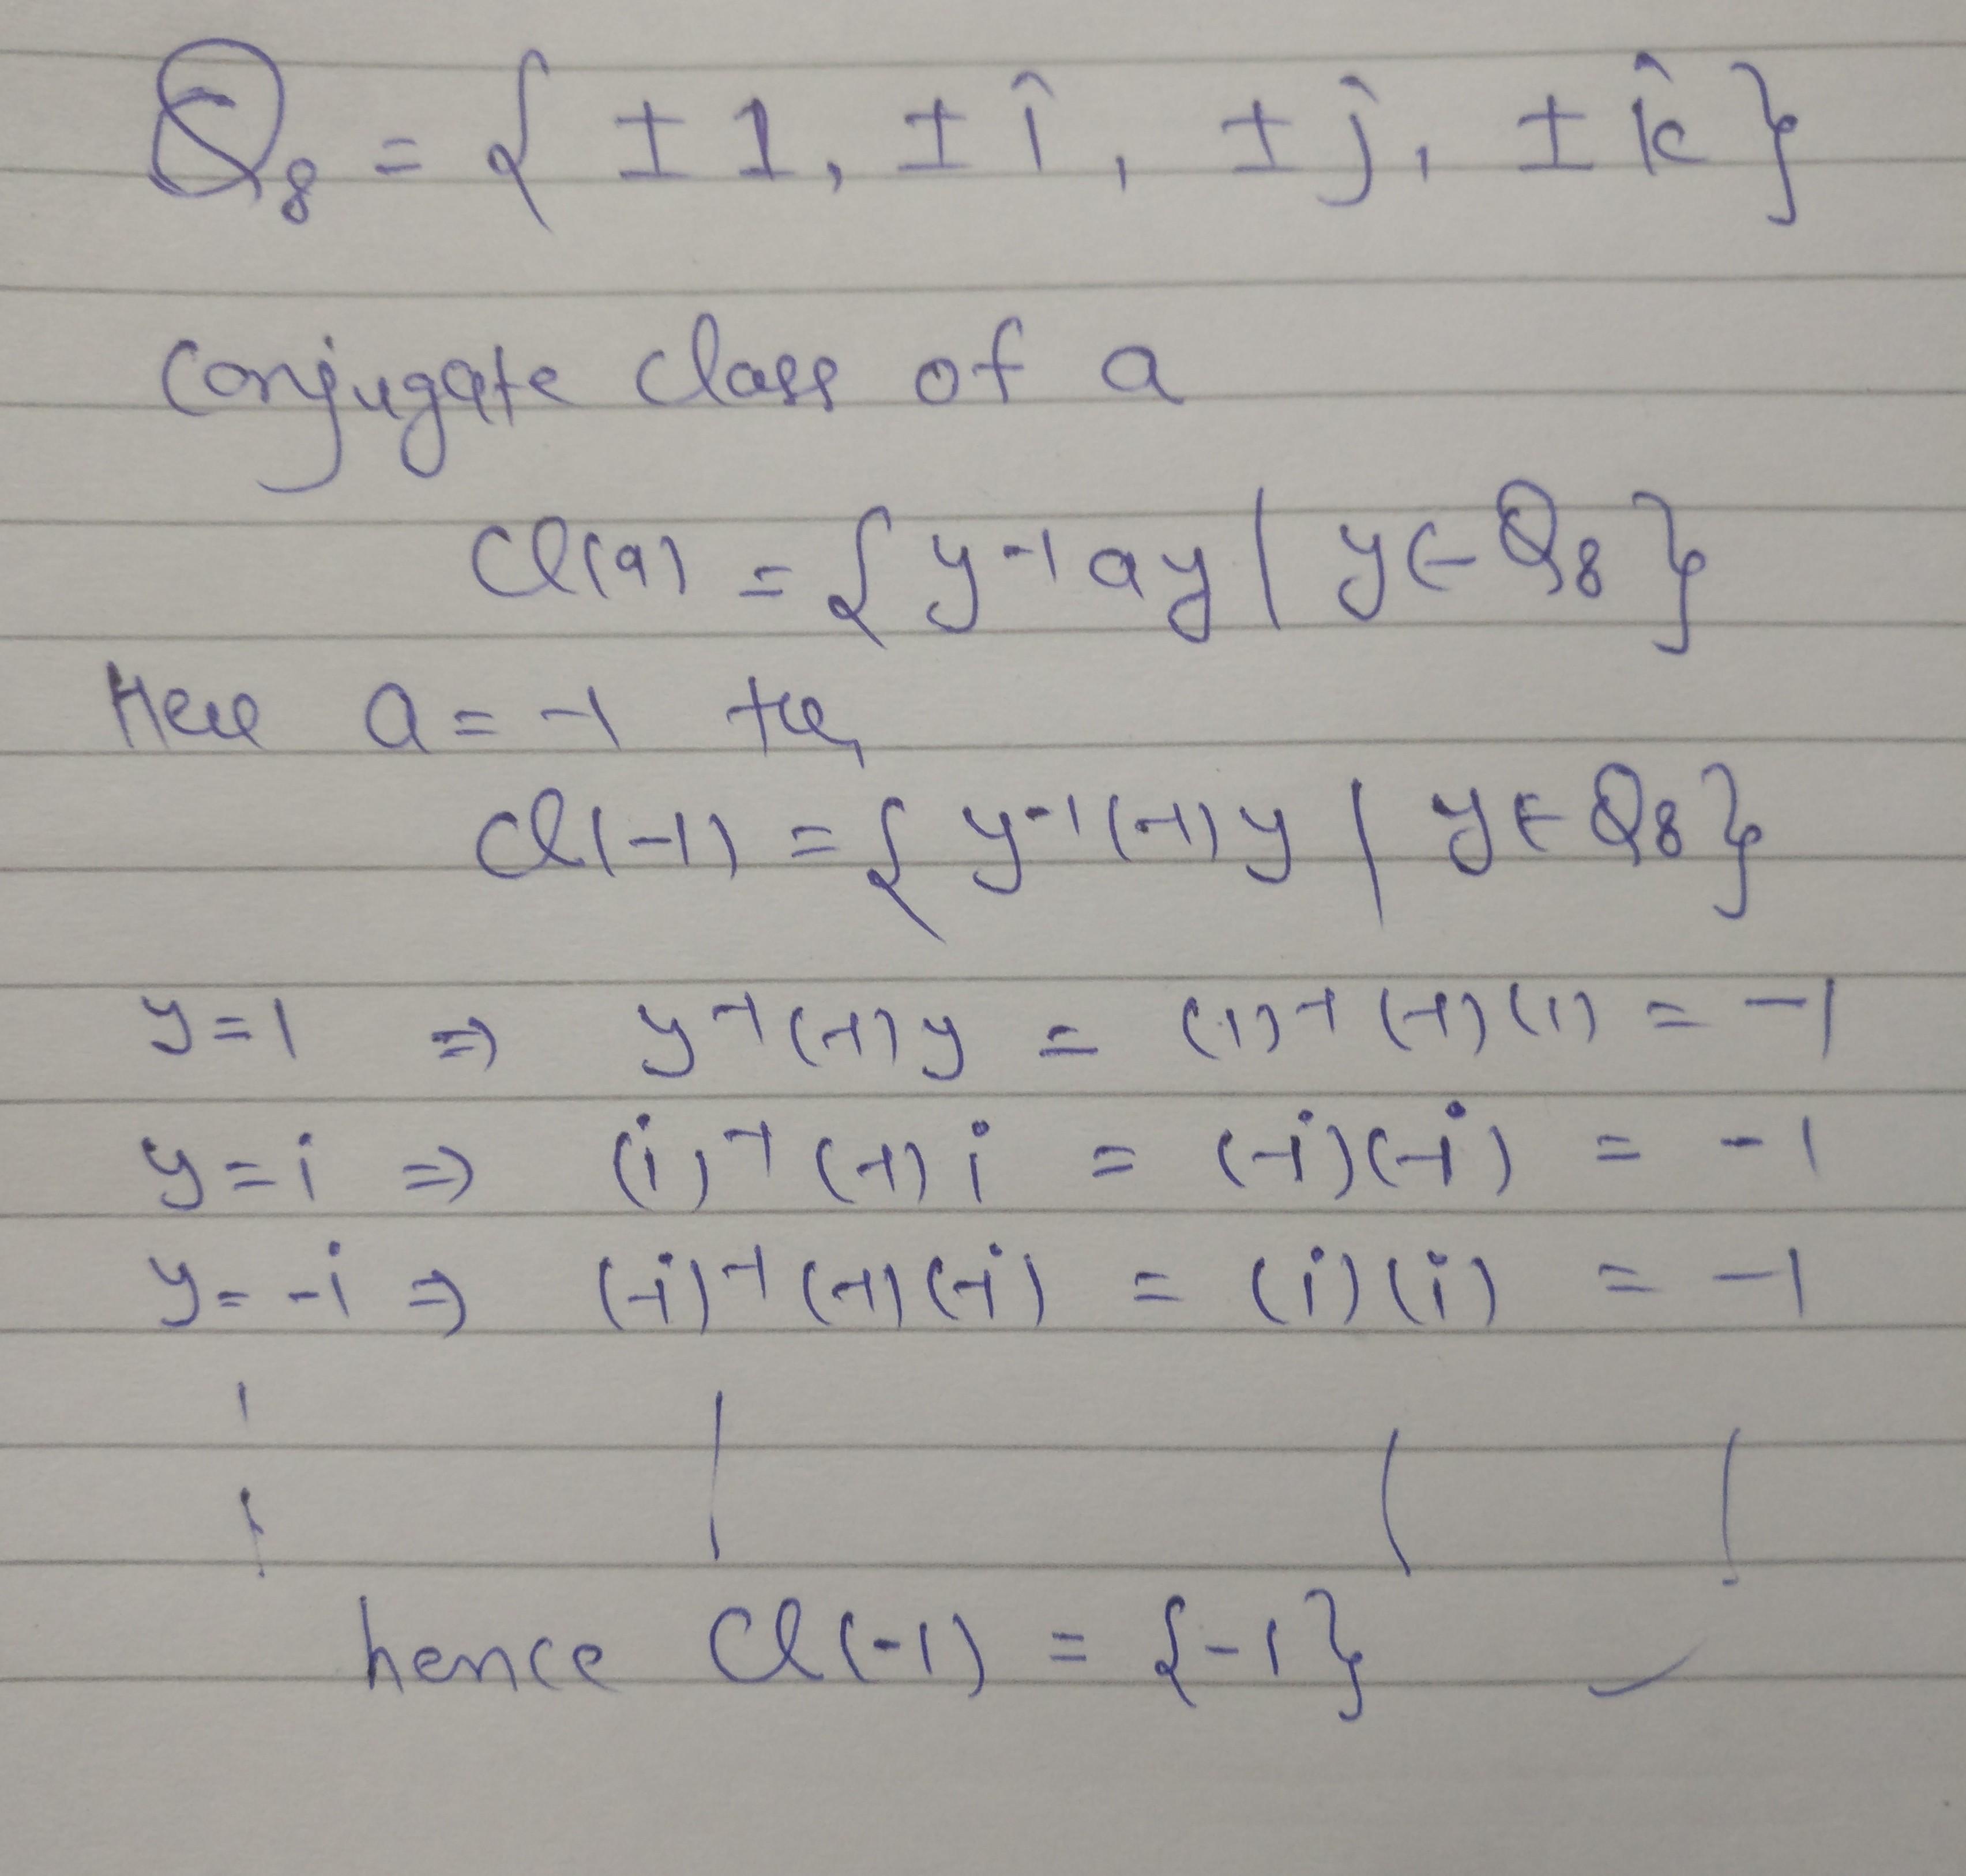 Q₈ = { ±1, ±î, ±ĵ, ±k̂ }
Conjugate class of a
Cl(a) = { y⁻¹ a y | y ∈ Q₈ }
Here a = -1
Cl(-1) = { y⁻¹ (-1) y | y ∈ Q₈ }
y = 1 ⇒ y⁻¹ (-1) y = (1)⁻¹ (-1) (1) = -1
y = i ⇒ (i)⁻¹ (-1) i = (-i)(-i) = -1
y = -i ⇒ (-i)⁻¹ (-1) (-i) = (i)(i) = -1
hence Cl(-1) = {-1}